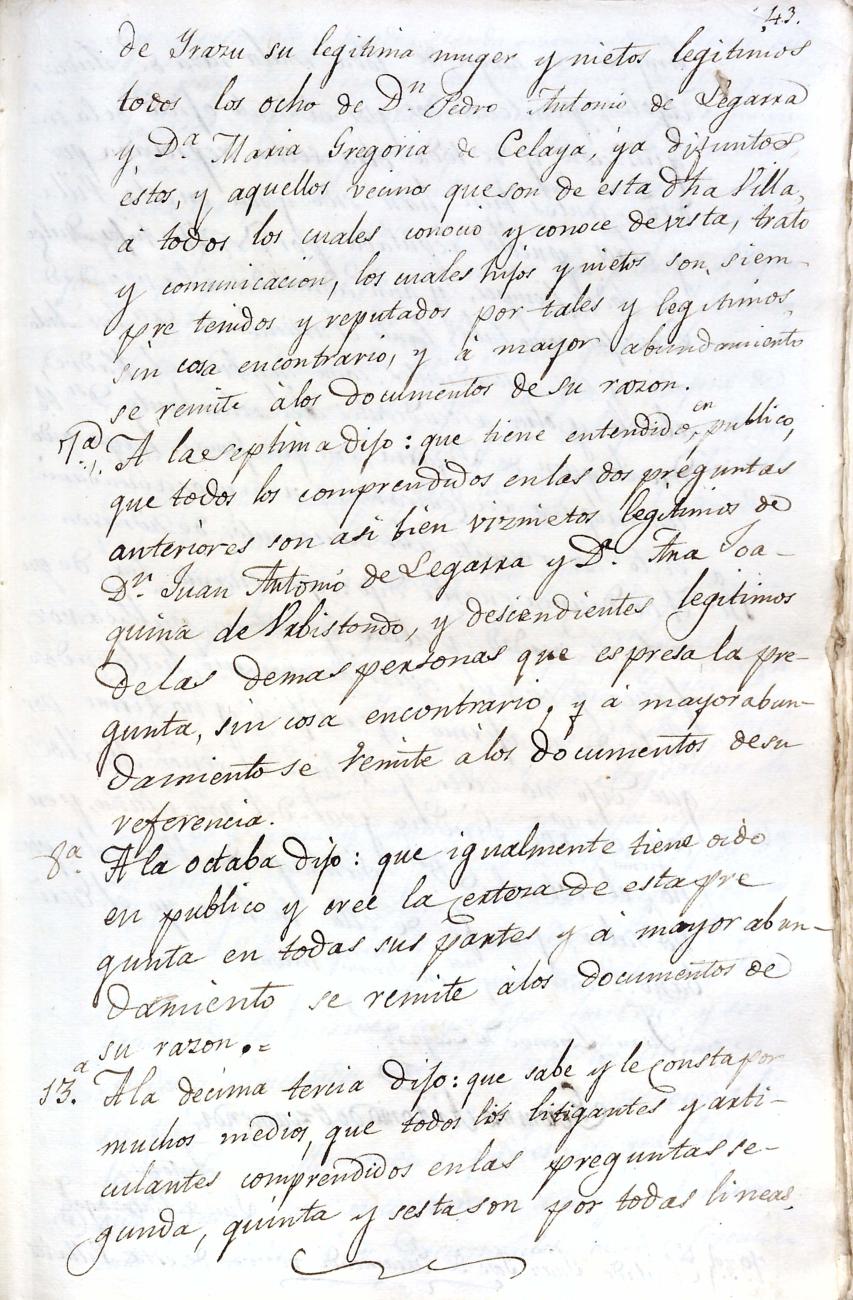 43.
de Yrazu su legitima muger y nietos legitimos
todos los ocho de Dⁿ Pedro Antonio de Legarra
y D.ª Maria Gregoria de Celaya, ya difuntos
éstos, y aquellos vecinos que son de esta dha Villa,
á todos los cuales conoció y conoce de vista, trato
y comunicacion, los cuales hijos y nietos son siem-
pre tenidos y reputados por tales y legitimos,
sin cosa encontrario, y á mayor abundamiento
se remite àlos documentos de su razon.
7ª A la septima dijo: que tiene entendido, en publico,
que todos los comprendidos en las dos preguntas
anteriores son asi bien viznietos legitimos de
Dⁿ. Juan Antonio de Legarra y D.ª Ana Joa-
quina de Urbistondo, y descendientes legitimos
delas demas personas que espresa la pre-
gunta, sin cosa encontrario, y á mayor abun-
damiento se remite álos documentos desu
referencia.
8ª A la octaba dijo: que igualmente tiene oido
en publico y cree la certeza de esta pre
gunta en todas sus partes y á mayor abun-
damiento se remite àlos documentos de
su razon. =
13.ª A la decima tercia dijo: que sabe y le consta por
muchos medios, que todos los litigantes y arti-
culantes comprendidos en las preguntas se-
gunda, quinta y sesta son por todas lineas